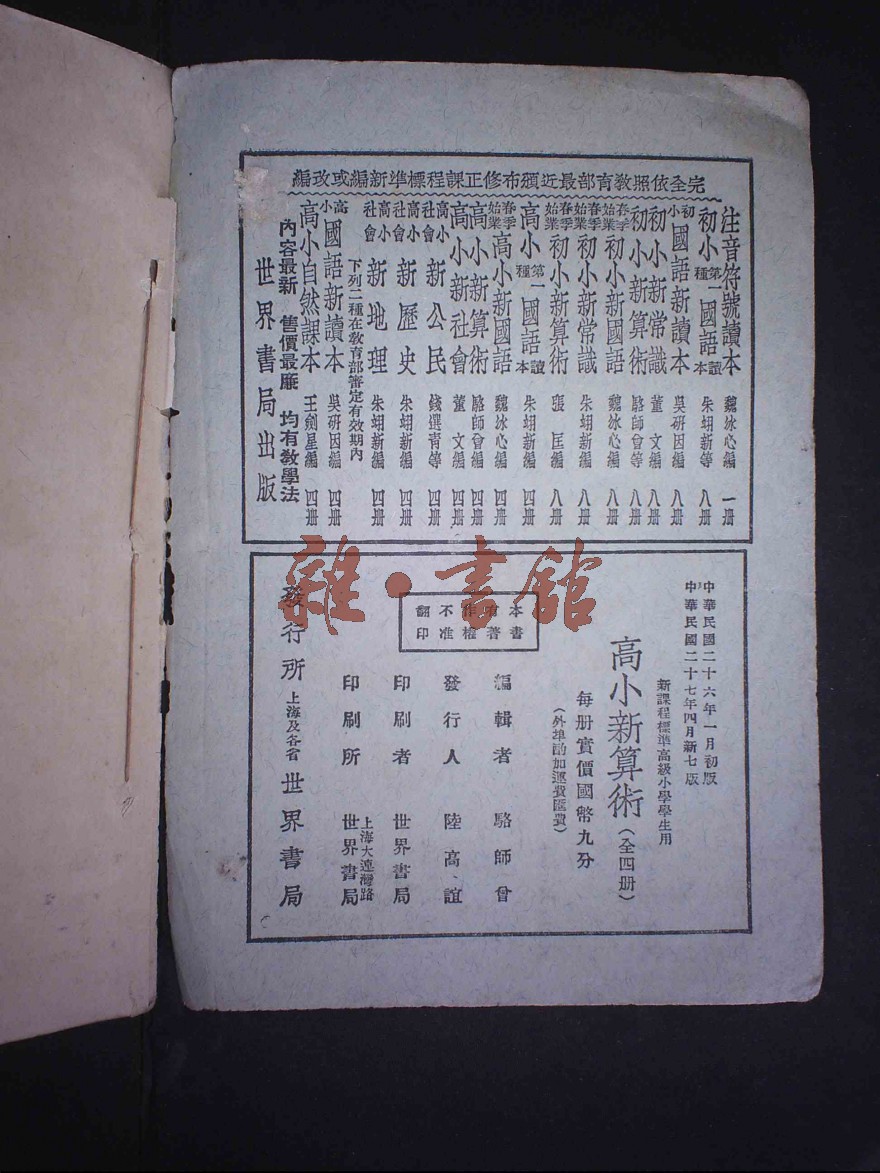 完全依照教育部最近頒布修正課程標準新編或改編
注音符號讀本 魏冰心編 一册
初小第一種國語讀本 朱翊新等 八册
初小國語新讀本 吳研因編 八册
初小新常識 董文編 八册
初小新算術 駱師曾等 八册
春季始業初小新國語 魏冰心編 八册
春季始業初小新常識 朱翊新編 八册
春季始業初小新算術 張匡編 八册
高小第一種國語讀本 朱翊新編 四册
春季始業高小新國語 魏冰心編 四册
高小新算術 駱師曾編 四册
高小新社會 董文編 四册
高小社會新公民 錢選青等 四册
高小社會新歷史 朱翊新編 四册
高小社會新地理 朱翊新編 四册
下列二種在教育部審定有效期內
高小國語新讀本 吳研因編 四册
高小自然課本 王劍星編 四册
內容最新 售價最廉 均有教學法
世界書局出版
中華民國二十六年一月初版
中華民國二十七年四月新七版
新課程標準高級小學學生用
高小新算術(全四册)
每册實價國幣九分
(外埠酌加運費匯費)
本書有著作權不准翻印
編輯者 駱師曾
發行人 陸高誼
印刷者 世界書局
印刷所 上海大連灣路世界書局
發行所 上海及各省世界書局
雜·書館